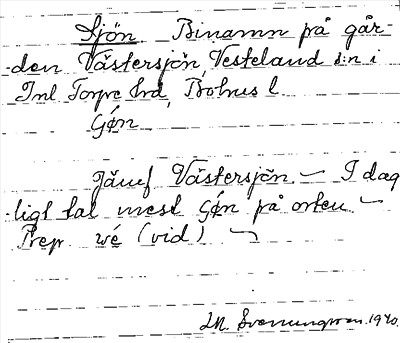 Sjön Binamn på går-
den Västersjön, Vesteland s:n i
Inl Torpe hd, Bohus l.
Gǿn
Jämf Västersjön. — I dag
ligt tal mest Gǿn på orten —
Prep wé (vid) —
Svenungsson. 1940.